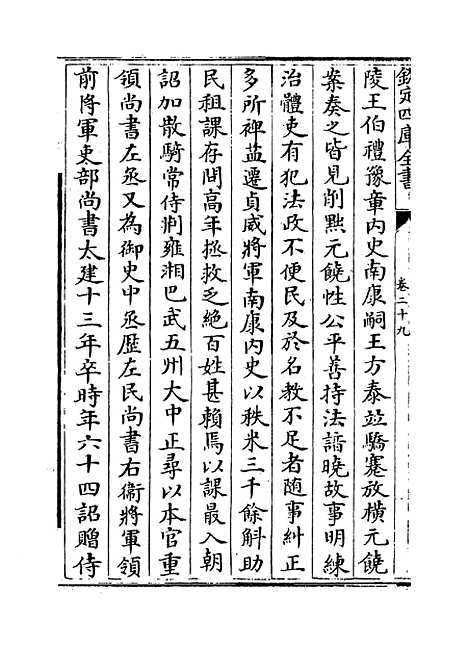 欽定四庫全書
卷二十九
陵王伯禮豫章内史南康嗣王方泰並驕蹇放橫元饒
案奏之皆見削黜元饒性公平善持法諳曉故事明練
治體吏有犯法政不便民及於名教不足者随事糾正
多所裨益遷貞威將軍南康内史以秩米三千餘斛助
民租課存問高年拯救乏絶百姓甚賴焉以課最入朝
詔加散騎常侍荆雍湘巴武五州大中正尋以本官重
領尚書左丞又為御史中丞歴左民尚書右衞將軍領
前將軍吏部尚書太建十三年卒時年六十四詔贈侍